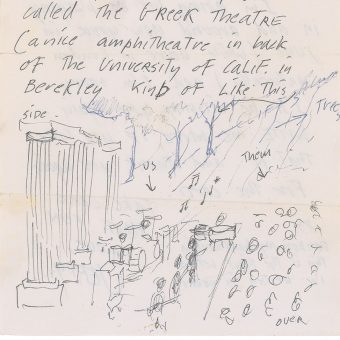 called the GREEK THEATRE
(a nice amphitheatre in back
of the University of Calif. in
Berekley kind of Like This
side.
Trees
us
Them
OVER